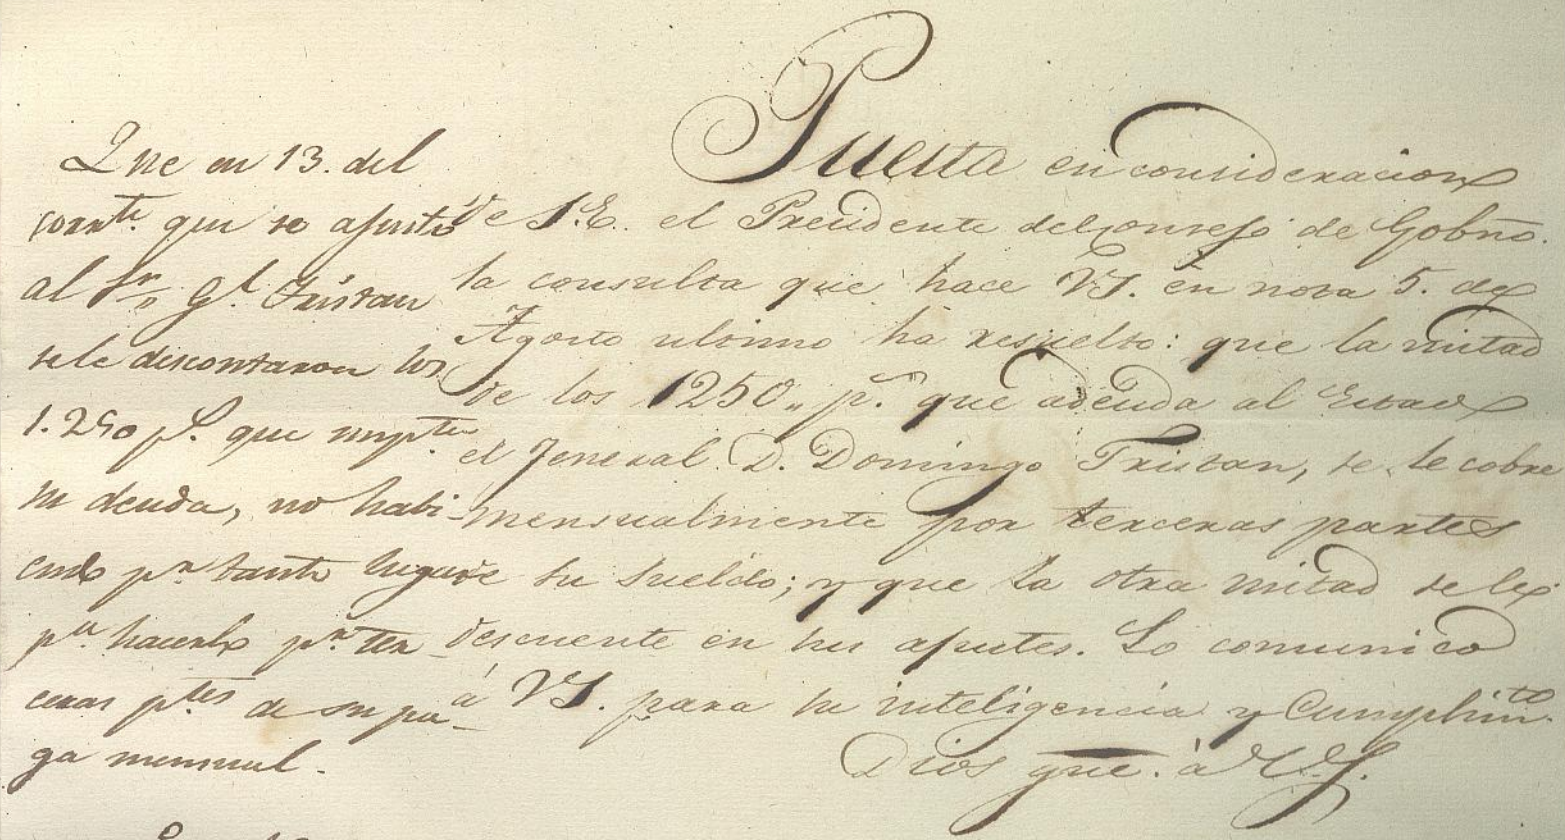 Que en 13. del
corrte. que se ajustó
al Sr. Gl. Tristan
se le descontaron los
1.250 ps. que impte
su deuda, no habi-
endo pr. tanto lugar
pa. hacerlo pr. ter
ceras ptes de su pa-
ga mensual.
Puesta en consideracion
de S.E. el Presidente del consejo de Gobno.
la consulta que hace VS. en nota 5. de
Agosto ultimo ha resuelto: que la mitad
de los 1250,, ps. que adeuda al Estado
el Jeneral D. Domingo Tristan, se le cobre
mensualmente por terceras partes
de su sueldo; y que la otra mitad se le
descuente en sus ajustes. Lo comunico
á VS. para su inteligencia y Cumplimto.
Dios gue. à VS.